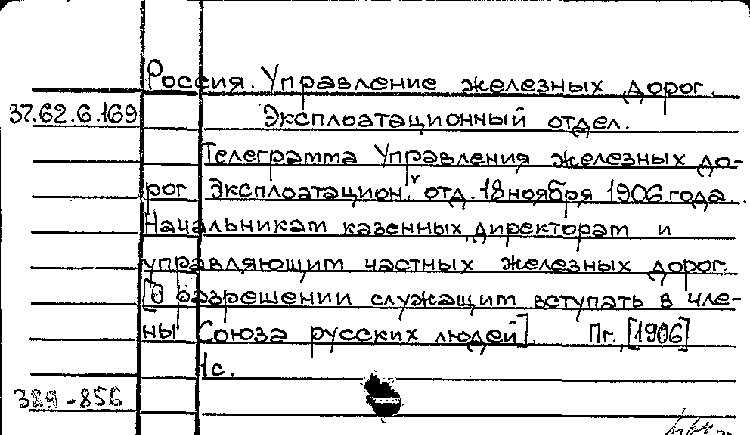 Россия. Управление железных дорог.
37.62.6.169 Эксплоатационный отдел.
Телеграмма Управления железных до-
рог Эксплоатацион. отд. 18 ноября 1906 года.
Начальникам казенных, директорам и
управляющим частных железных дорог.
[О разрешении служащим вступать в чле-
ны Союза русских людей]. Пг., [1906]
1с.
389-856